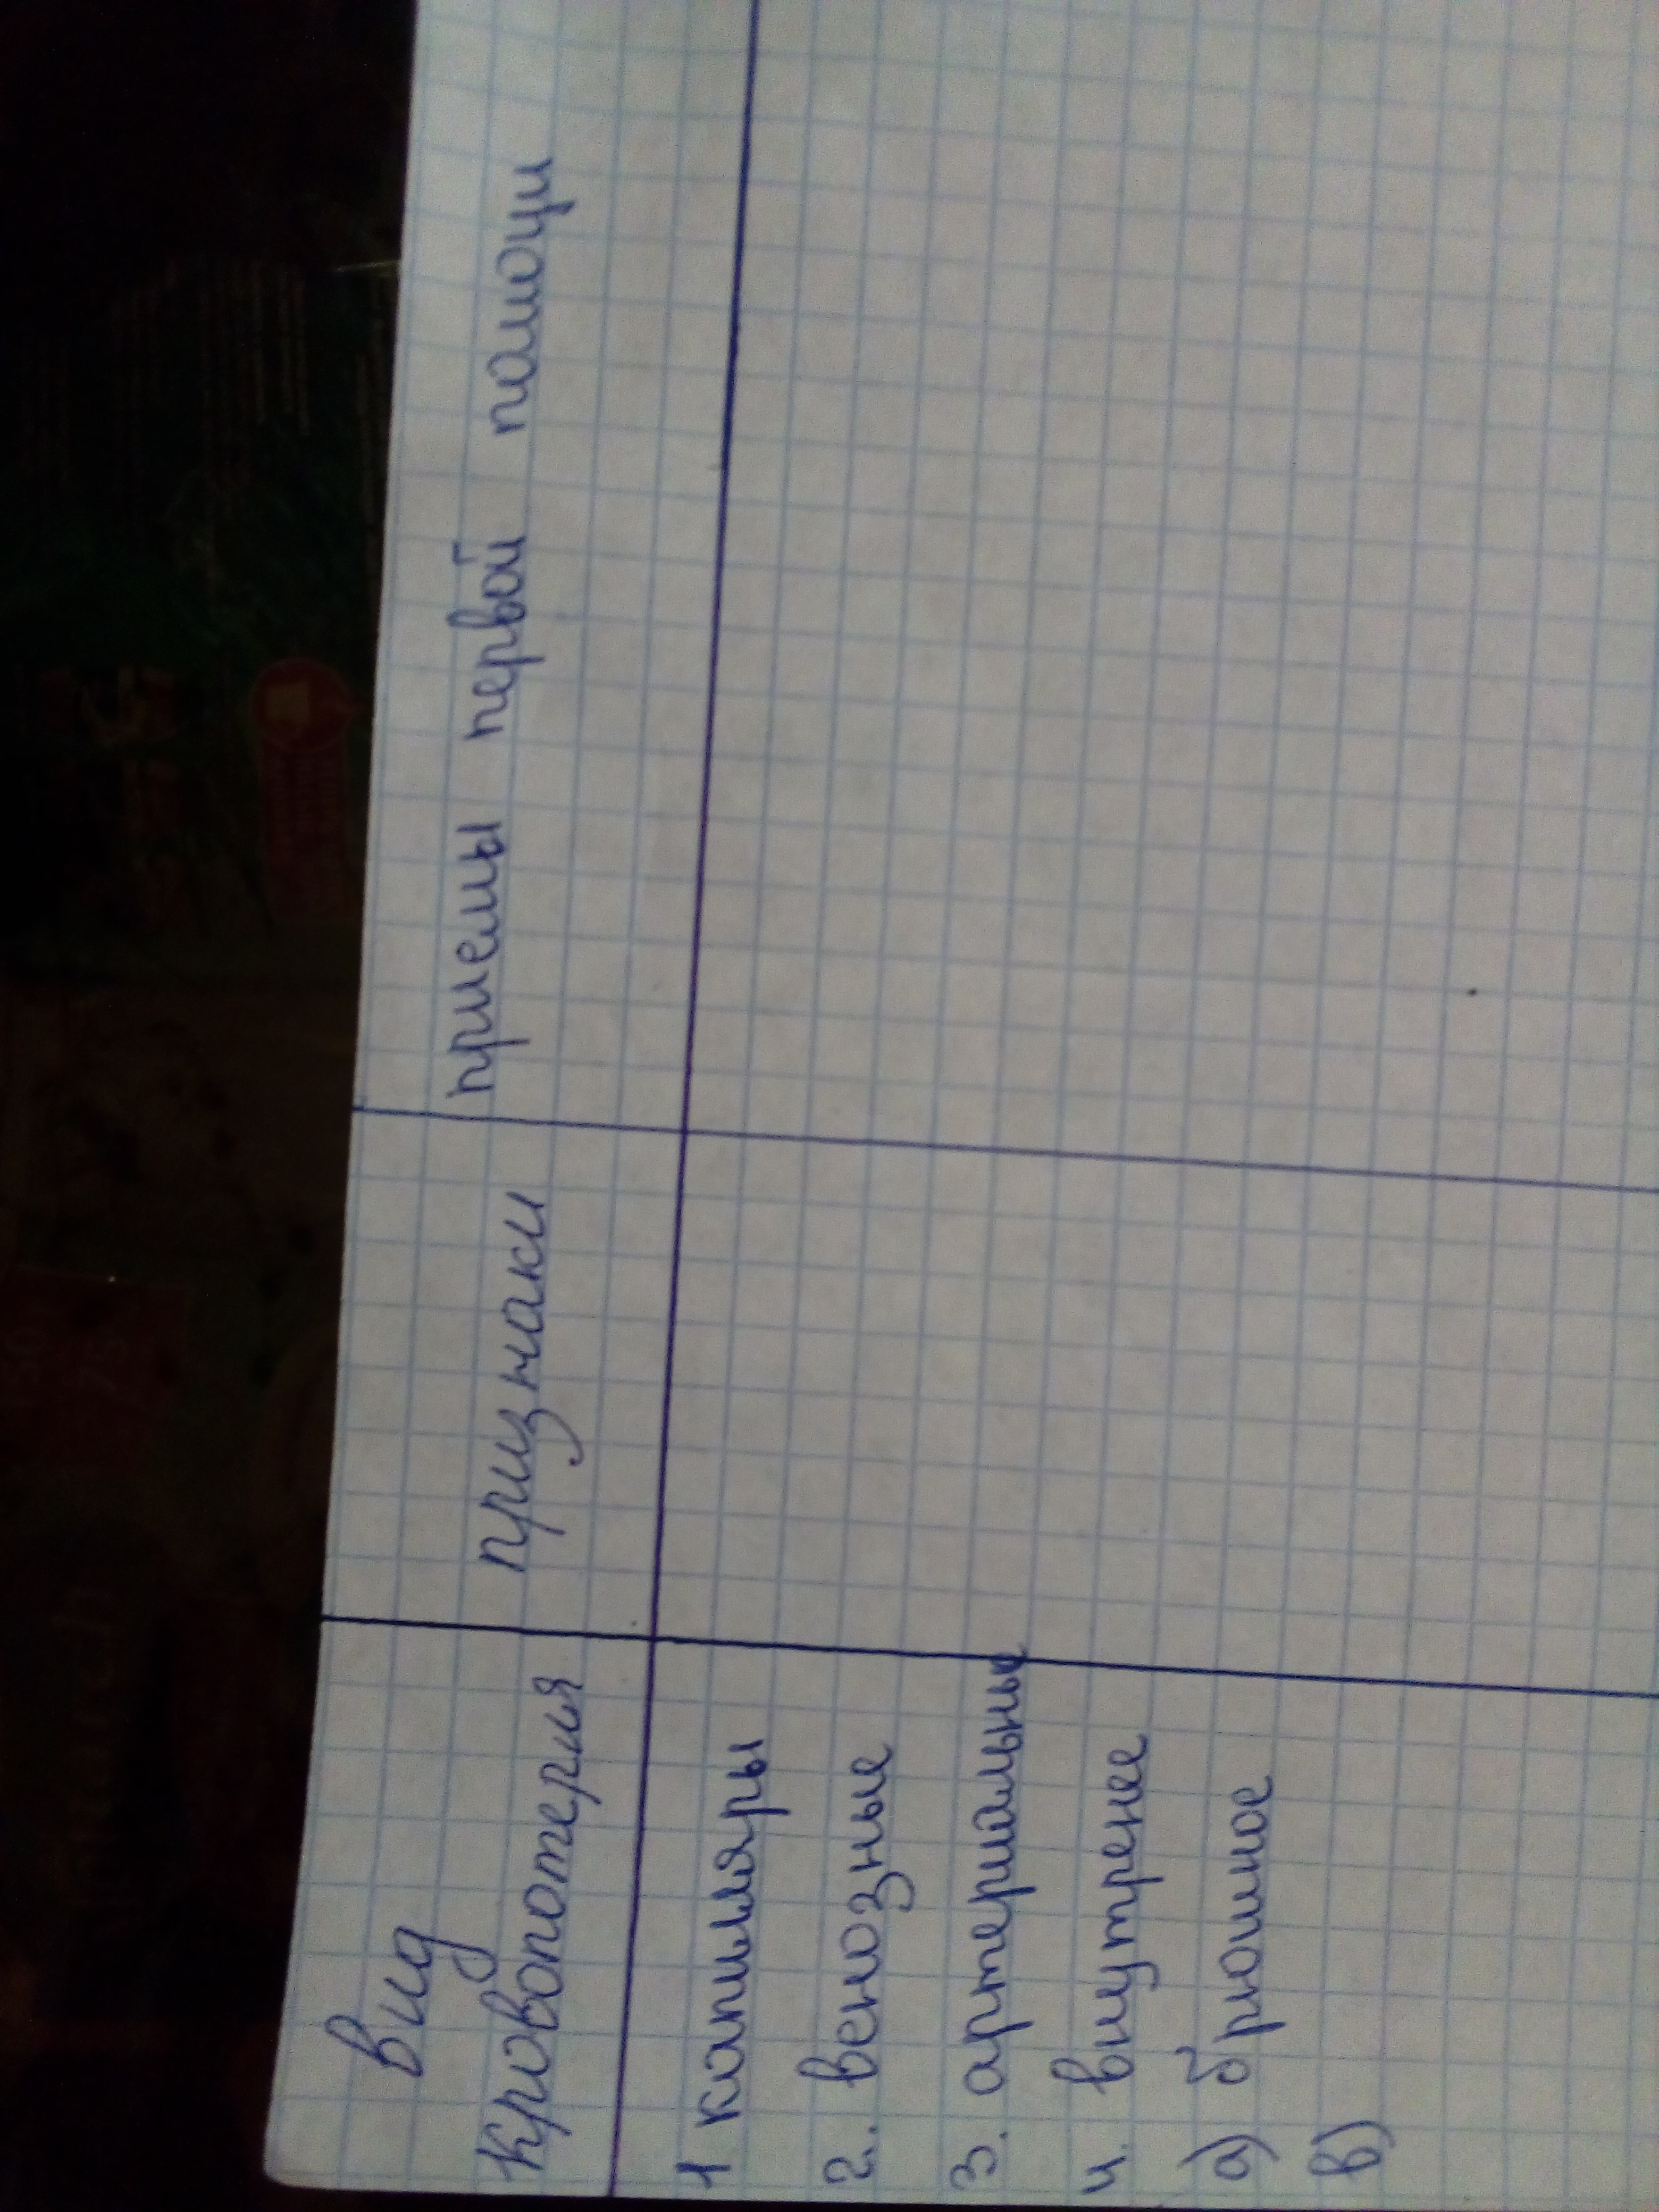 Вид
Кровопотерия
признаки
приемы первой помощи
1 капиляры
2. венозные
3. артериальные
4. внутренее
а) брюшное
в)